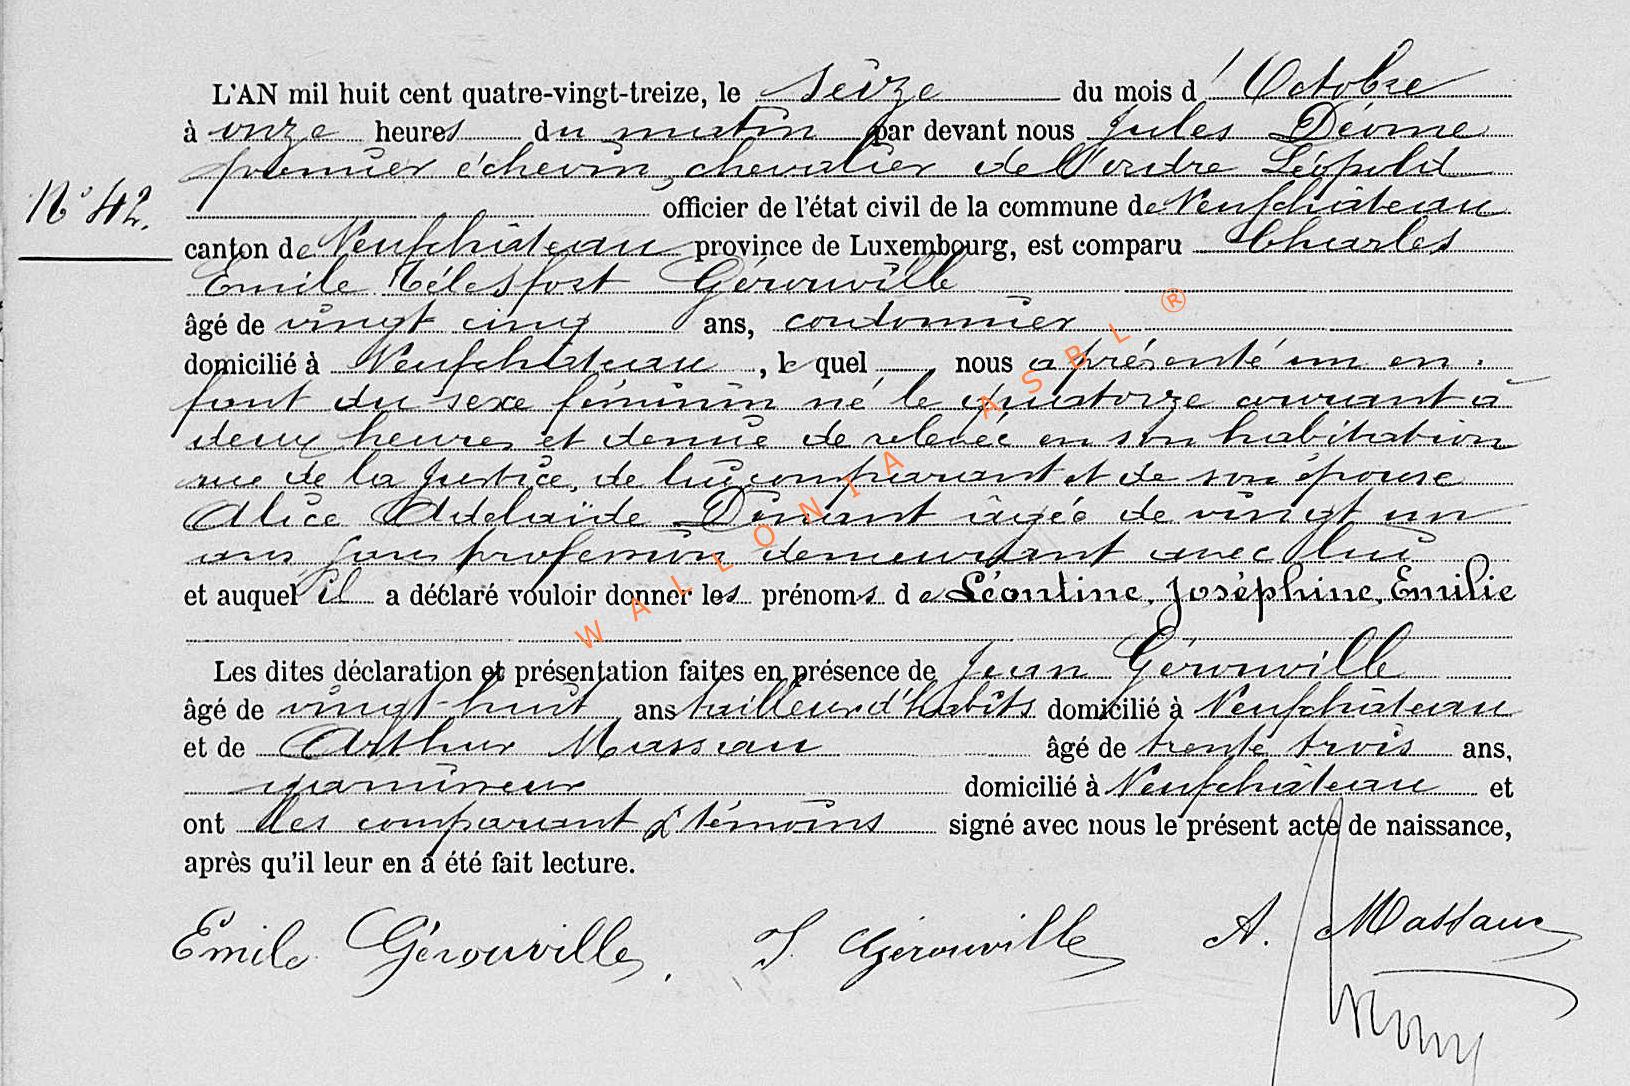 L'AN mil huit cent quatre-vingt-treize, le seize du mois d'Octobre
à onze heures du matin par devant nous Jules Déome
premier échevin, chevalier de l'ordre Léopold
N° 42.
officier de l'état civil de la commune de Neufchâteau
canton de Neufchâteau province de Luxembourg, est comparu Charles
Emile Télesfort Gérouville
âgé de vingt cinq ans, cordonnier
domicilié à Neufchâteau, lequel nous a présenté un en-
fant du sexe féminin né le quatorze courant à
deux heures et demie de relevée en son habitation
rue de la Justice, de lui comparant et de son épouse
Alice Adelaïde Dinant âgée de vingt un
ans sans profession demeurant avec lui
et auquel il a déclaré vouloir donner les prénoms de Léontine, Joséphine, Emilie
Les dites déclaration et présentation faites en présence de Jean Gérouville
âgé de vingt-huit ans tailleur d'habits domicilié à Neufchâteau
et de Arthur Massaux âgé de trente trois ans,
domicilié à Neufchâteau et
ont les comparant & témoins signé avec nous le présent acte de naissance,
après qu'il leur en a été fait lecture.
Emile Gérouville, J. Gérouville A. Massaux
WALLONIA ASBL ®